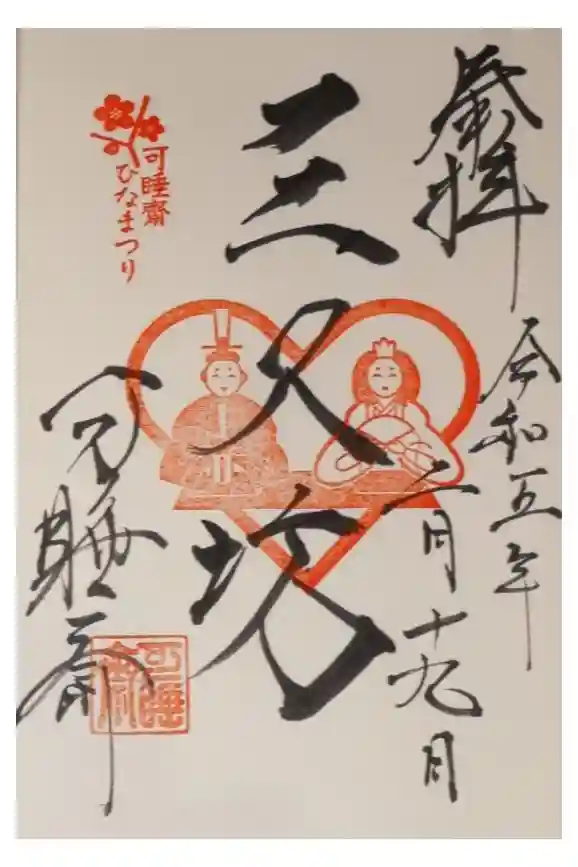 奉拝
令和五年
二月十九日
三尺坊
可睡齋
ひなまつり
可睡斎
可睡齋